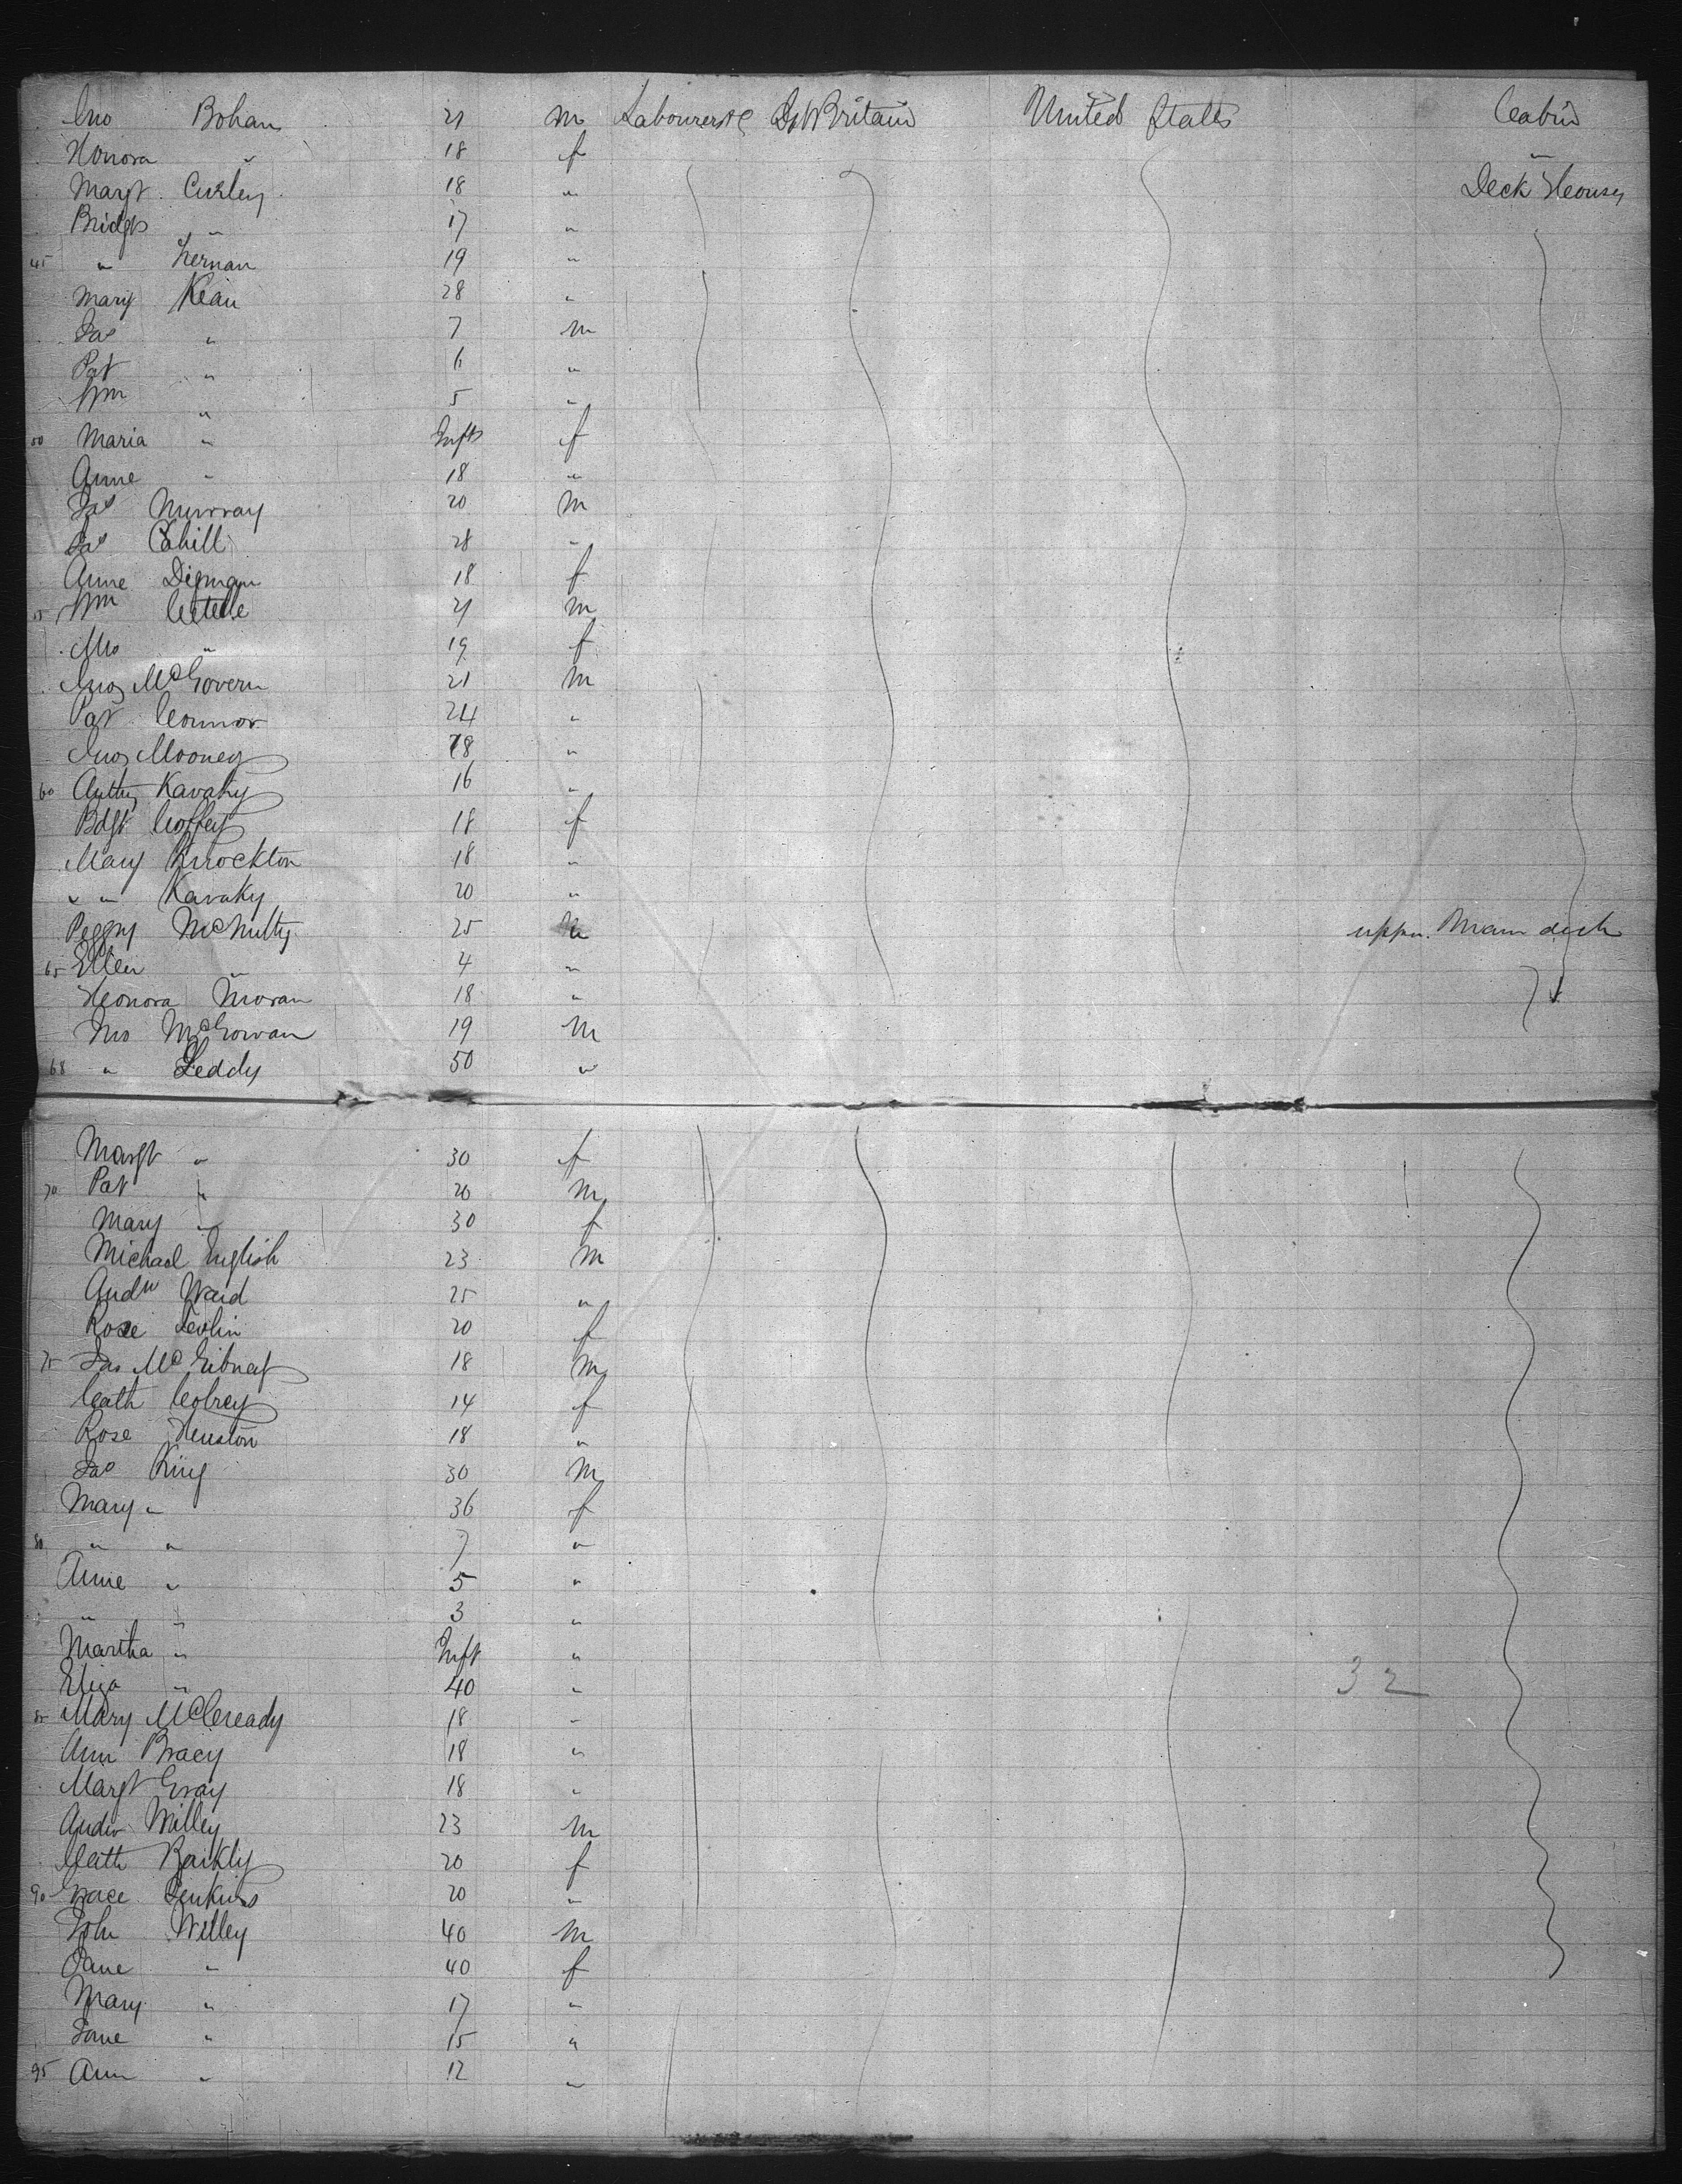 Jno Bohan 21 m Labourers &c Gt Britain United States Cabin
Honora " 18 f "
Margt Curley 18 " Deck House
Bridgt " 17 "
45 " Kernan 19 "
Mary Kean 28 "
Jas " 7 m
Pat " 6 "
Wm " 5 "
50 Maria " Inft f
Anne " 18 "
Jas Murray 20 m
Jas Cahill 28 "
Anne Digman 18 f
55 Wm 21 m
Mrs " 19 f
Jno McGovern 21 m
Pat Connor 24 "
Jno Mooney 18 "
60 Anthy Kavaky 16 "
Bdgt Coffey 18 f
Mary Knockton 18 "
" " Kavaky 20 "
Peggy McNulty 25 " upper Main deck
65 Ellen " 4 "
Honora Moran 18 "
Jno McGowan 19 m
68 " Leddy 50 "
Margt " 30 f
70 Pat " 20 m
Mary " 30 f
Michael English 23 m
Andw Ward 25 "
Rose Devlin 20 f
75 Jas McGibney 18 m
Cath Colrey 14 f
Rose Heuston 18 "
Jas King 30 m
Mary " 36 f
80 " " 7 "
Anne " 5 "
" " 3 "
Martha " Inft "
Eliza " 40 " 32
85 Mary McCready 18 "
Ann Bracy 18 "
Margt Gray 18 "
Andw Willey 23 m
Cath 20 f
90 Grace Jenkins 20 "
John Willey 40 m
Jane " 40 f
Mary " 17 "
Jane " 15 "
95 Ann " 12 "